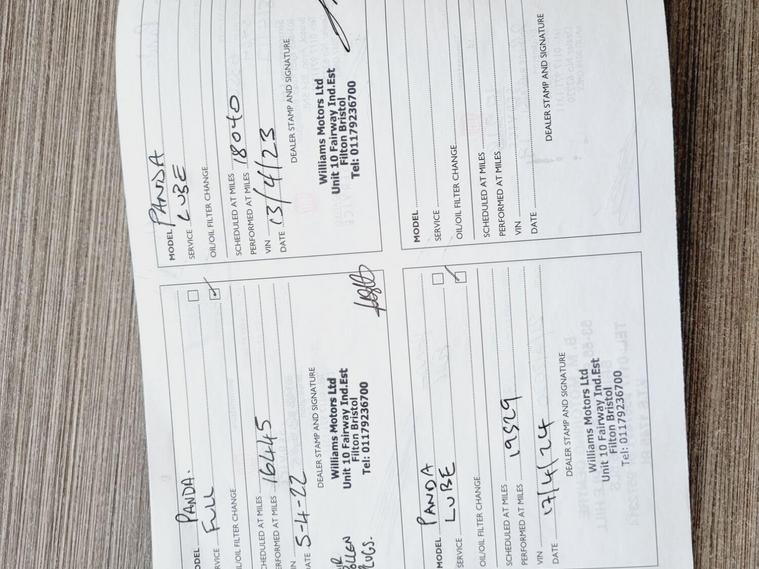 MODEL PANDA.
SERVICE FULL
OIL/OIL FILTER CHANGE
SCHEDULED AT MILES
PERFORMED AT MILES 16445
VIN
DATE 5-4-22
DEALER STAMP AND SIGNATURE
Williams Motors Ltd
Unit 10 Fairway Ind.Est
Filton Bristol
Tel: 01179236700
MODEL PANDA
SERVICE LUBE
OIL/OIL FILTER CHANGE
SCHEDULED AT MILES
PERFORMED AT MILES 18040
VIN
DATE 13/4/23
DEALER STAMP AND SIGNATURE
Williams Motors Ltd
Unit 10 Fairway Ind.Est
Filton Bristol
Tel: 01179236700
MODEL PANDA
SERVICE LUBE
OIL/OIL FILTER CHANGE
SCHEDULED AT MILES
PERFORMED AT MILES 19529
VIN
DATE 17/4/24
DEALER STAMP AND SIGNATURE
Williams Motors Ltd
Unit 10 Fairway Ind.Est
Filton Bristol
Tel: 01179236700
MODEL
SERVICE
OIL/OIL FILTER CHANGE
SCHEDULED AT MILES
PERFORMED AT MILES
VIN
DATE
DEALER STAMP AND SIGNATURE